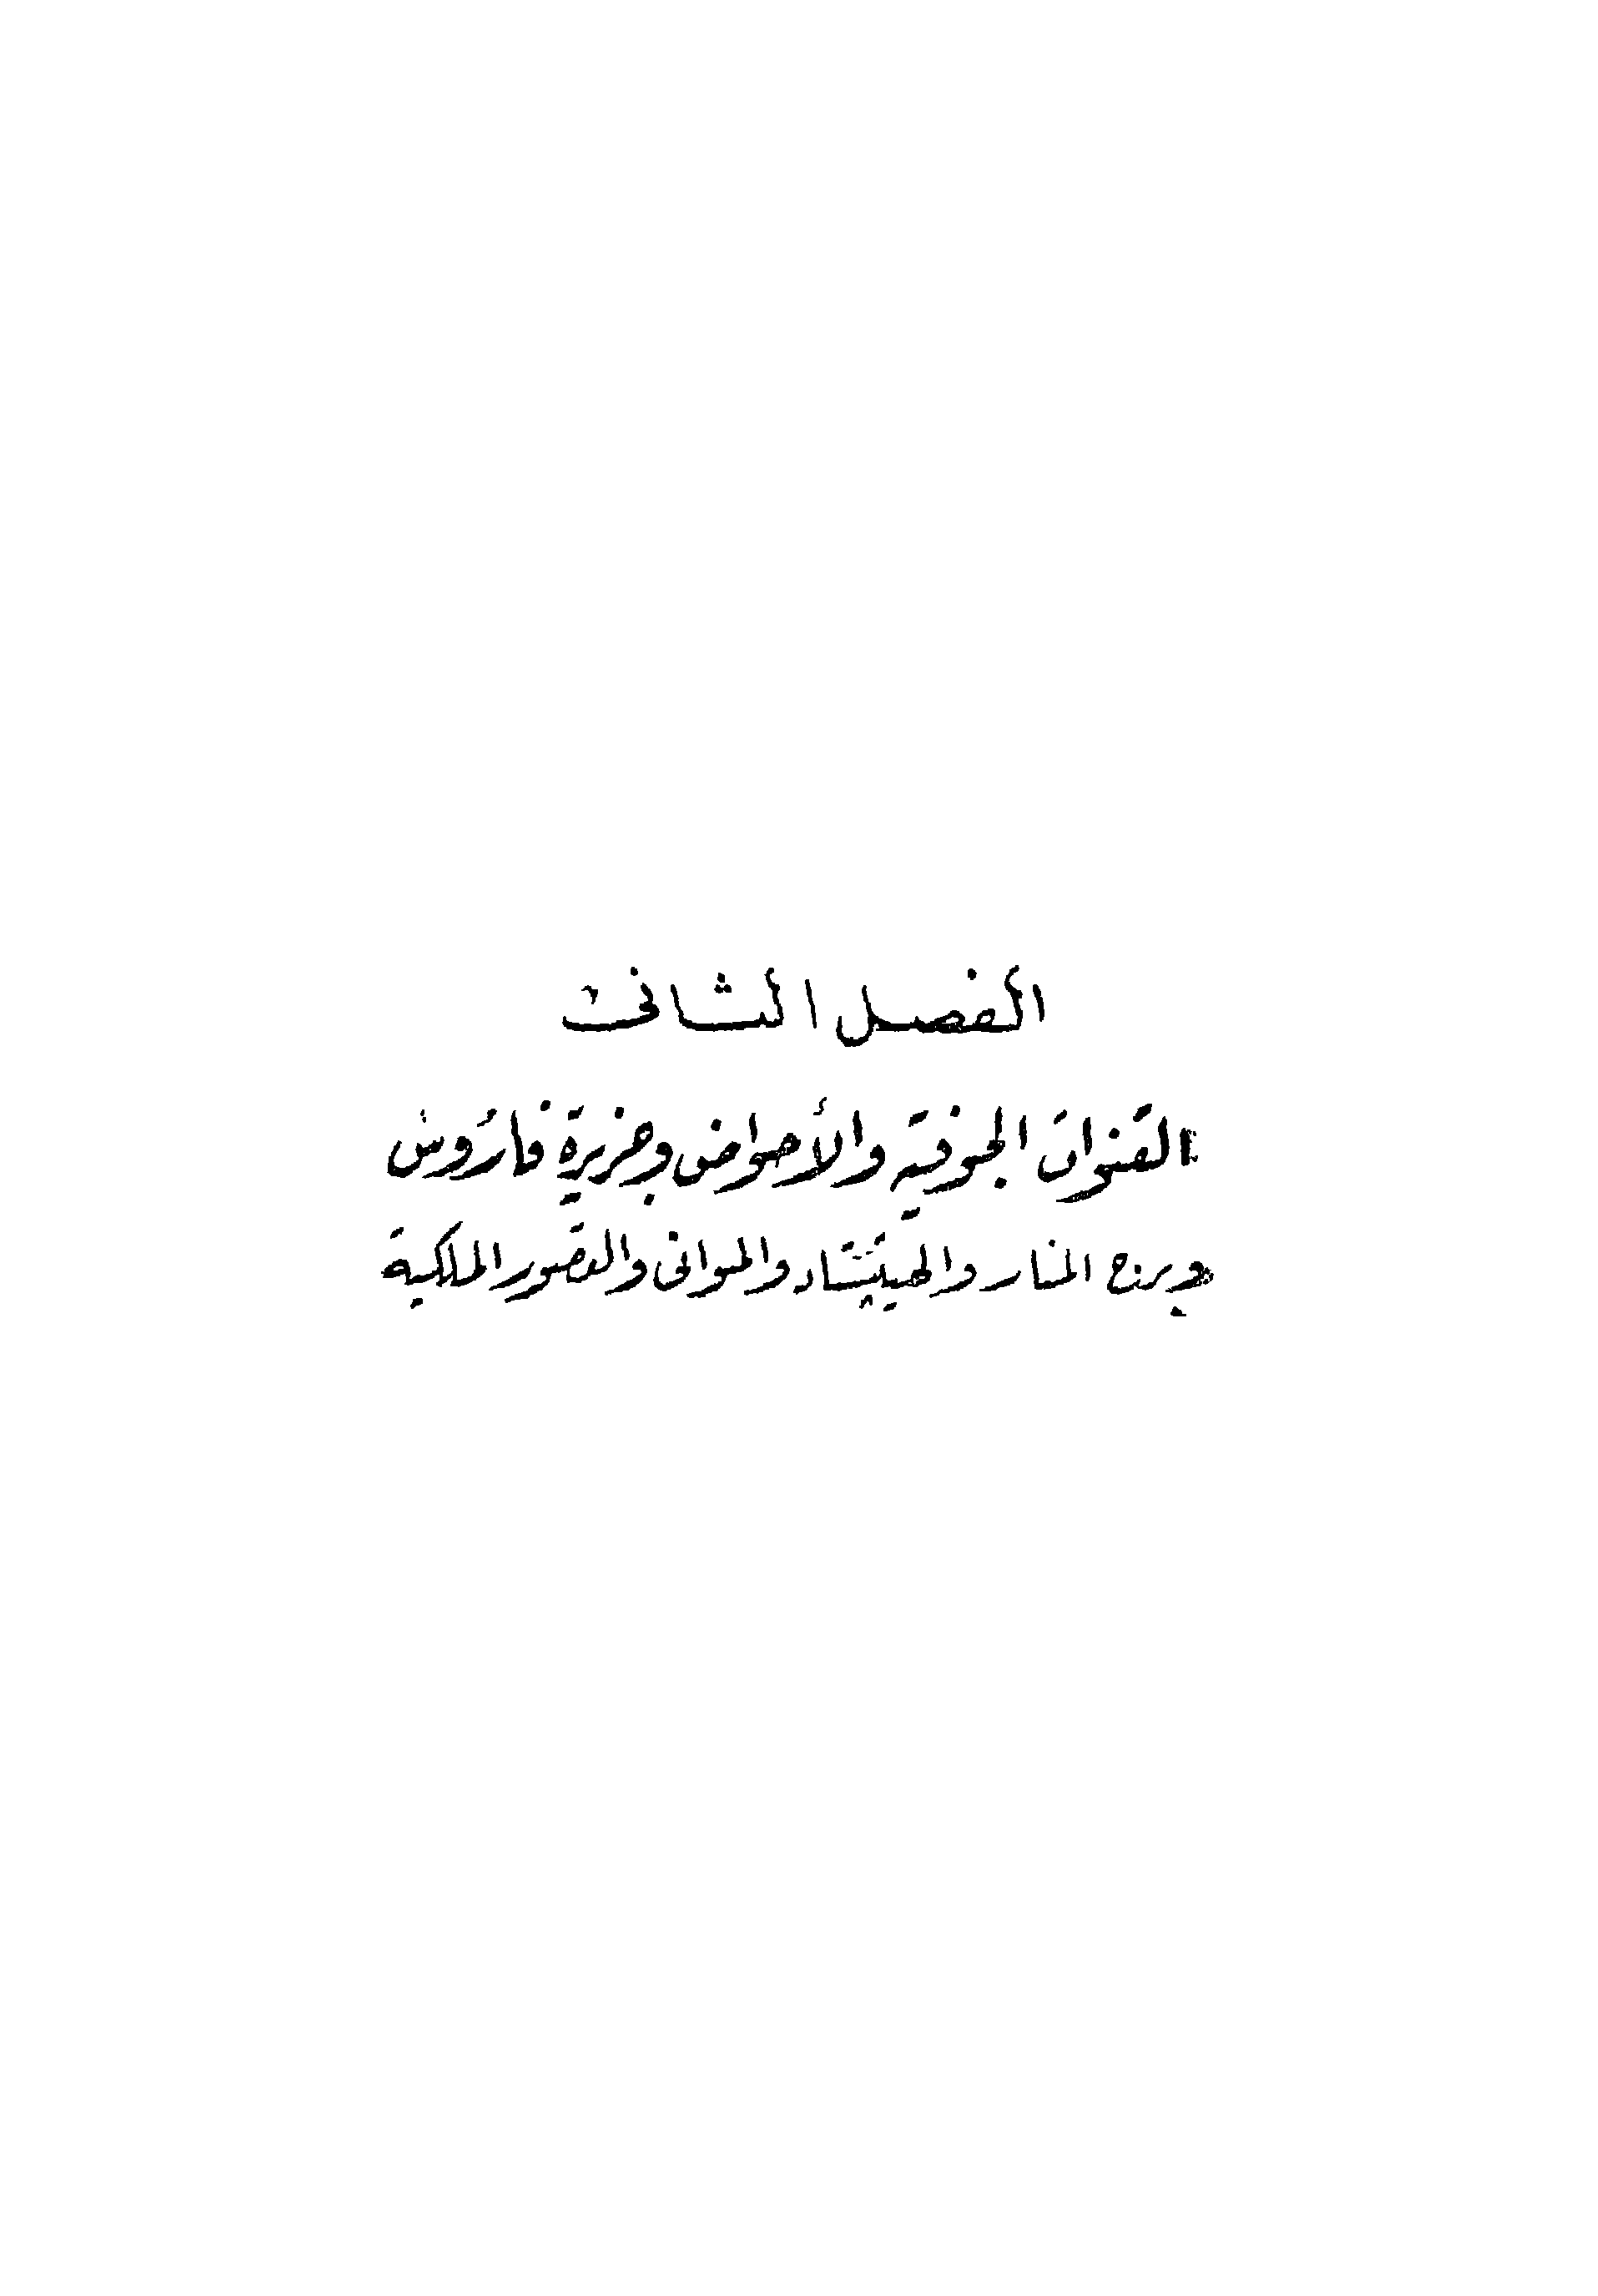 الفصل الثانى
القنوات الجوفية والأحواض وجزيرة فاروس
وبرج المنار والهيبتستاد والموانى والقصور الملكية